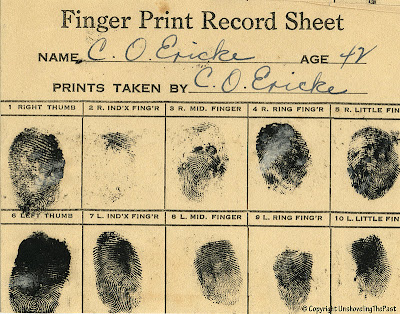 Finger Print Record Sheet
NAME C. O. Ericke AGE 42
PRINTS TAKEN BY C. O. Ericke
1 RIGHT THUMB 2 R. IND'X FING'R 3 R. MID. FINGER 4 R. RING FING'R 5 R. LITTLE FIN
6 LEFT THUMB 7 L. IND'X FING'R 8 L. MID. FINGER 9 L. RING FING'R 10 L. LITTLE FIN
© Copyright UnshovelingThePast